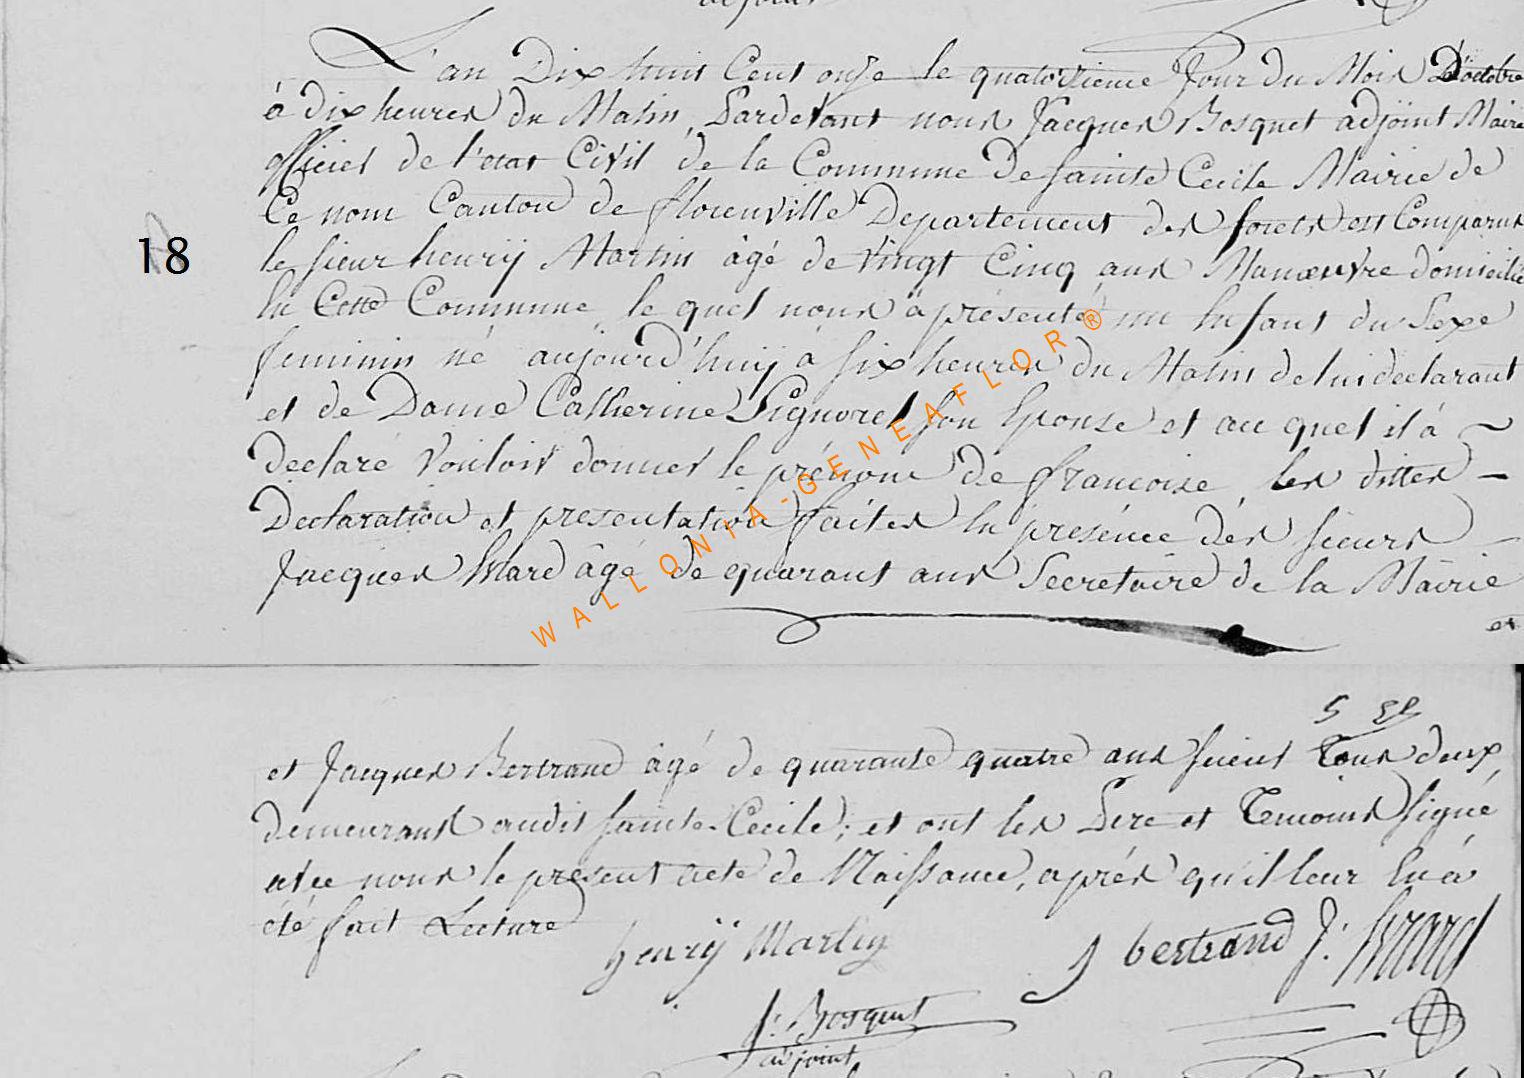 adjoint
L'an Dix huit Cent onze le quatorzieme Jour du Mois D'octobre
à dix heures du Matin, Pardevant nous Jacques Bosquet adjoint Maire
officier de l'etat Civil de la Commune de Sainte Cecile Mairie de
Ce nom Canton de florenville Departement des forets est Comparus
le sieur henrÿ Martin âgé de vingt Cinq ans Manœuvre domicilié
En Cette Commune le quel nous à présenté un Enfant du Sexe
feminin né aujourd'huÿ à six heures du Matin de lui declarant
et de Dame Catherine Pignorel son Epouse et au quel il à
declaré vouloir donner le prénom de francoise, les dittes
Declaration et presentation faites En presénce des sieurs
18
Jacques âgé de quarant ans Secretaire de la Mairie
et
WALLONIA-GENEAFLOR®
et Jacques Bertrand âgé de quarante quatre ans tous deux
demeurant audit Sainte-Cecile; et ont les Pere et Temoins signé
avec nous le présent acte de Naissance, aprés qu'il leur En à
été fait Lecture
henrÿ Martin
J bertrand
J: Bosquet
adjoint